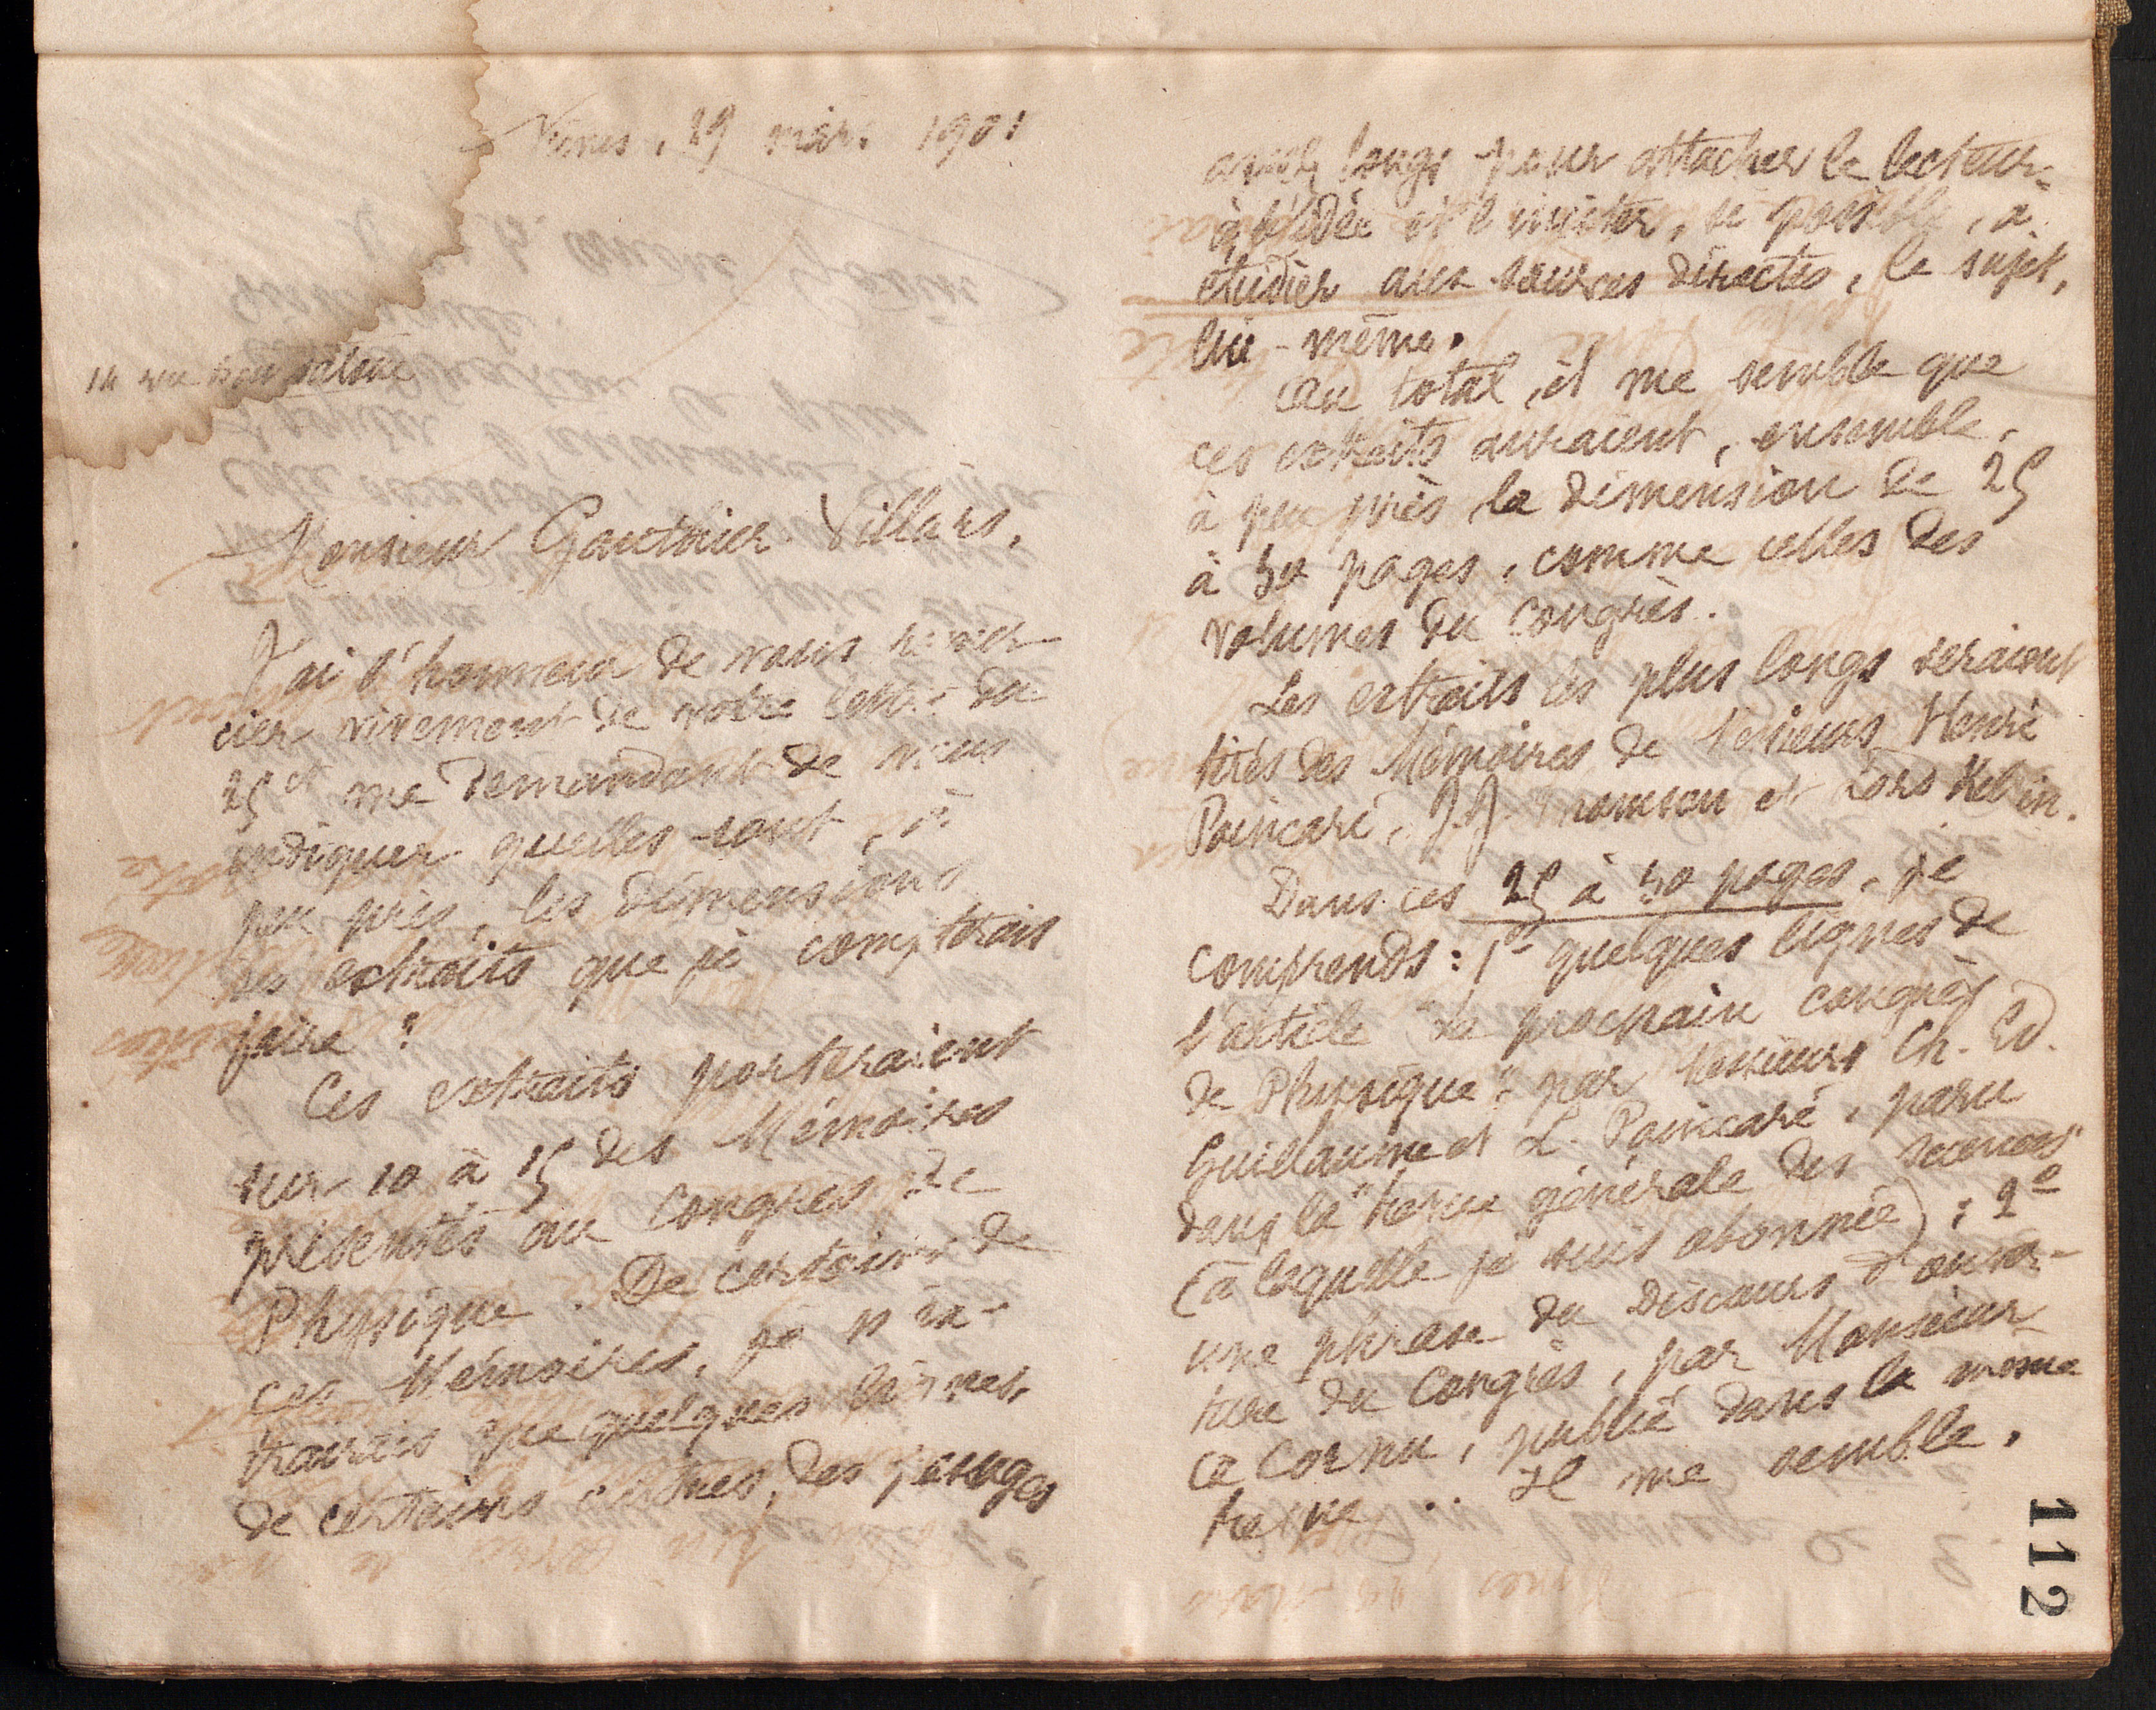 Nîmes, 29 mars 1901
14 rue
Monsieur Gauthier-Villars,
J'ai l'honneur de vous remer-
cier vivement de votre lettre du
25 et me demandant de vous
indiquer quelles sont, à
peu près, les dimensions
des extraits que je comptais
faire ?
Ces extraits porteraient
sur 10 à 15 des Mémoires
présentés au Congrès de
Physique. De certains de
ces Mémoires, je n'ex-
trairais que quelques lignes,
de certains autres, des passages
assez longs pour attacher le lecteur
à l'idée et l'inviter, si possible, à
étudier aux sources directes, le sujet,
lui-même.
Au total, il me semble que
ces extraits auraient, ensemble,
à peu près la dimension de 25
à 30 pages, comme celles des
volumes du Congrès.
Les extraits les plus longs seraient
tirés des Mémoires de Messieurs Henri
Poincaré, J.J. Thomson et Lord Kelvin.
Dans ces 25 à 30 pages, je
comprends : 1º quelques lignes de
l'article "le prochain congrès
de Physique", par Messieurs Ch. Ed.
Guillaume et L. Poincaré, paru
dans la "Revue générale des sciences"
(à laquelle je suis abonnée) ; 2º
une phrase du Discours d'ouver-
ture du Congrès, par Monsieur
A Cornu, publié dans la même
revue .. Il me semble,
112